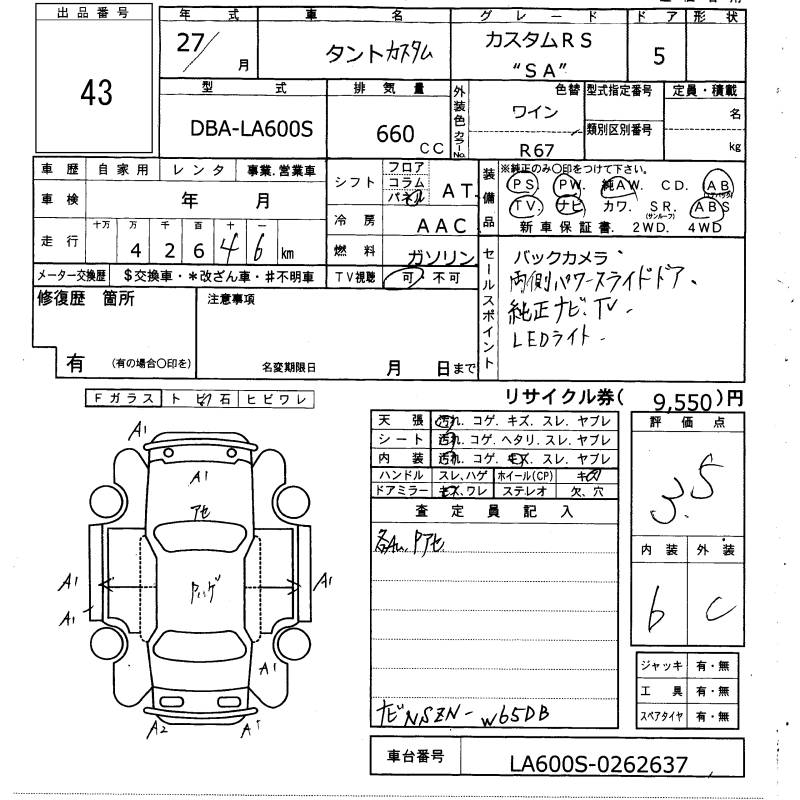 出品番号
43
年 式
27/ 月
車 名
タントカスタム
グレード
カスタムRS
“SA”
ドア
5
形 状
型 式
DBA-LA600S
排 気 量
660 CC
外装色
カラーNo.
色替
ワイン
R67
型式指定番号
類別区別番号
定員・積載
名
kg
車 歴 自 家 用 レ ン タ 事業.営業車
車 検 年 月
走 行 十万 万 千 百 十 一
4 2 6 4 6 km
メーター交換歴 $交換車・*改ざん車・#不明車
シフト フロア コラム パネル AT
冷 房 AAC
燃 料 ガソリン
TV視聴 可 不可
装備品
※純正のみ○印をつけて下さい。
PS. PW. 純AW. CD. AB
TV. ナビ カワ. SR. ABS
(サンルーフ)
新車保証書. 2WD. 4WD
セールスポイント
バックカメラ.
両側パワースライドドア、
純正ナビ.TV.
LEDライト.
修復歴 箇所
有 (有の場合○印を)
注意事項
名変期限日 月 日まで
リサイクル券( 9,550 )円
Fガラス ト ビ 石 ヒビワレ
天 張 汚れ. コゲ. キズ. スレ. ヤブレ
シート 汚れ. コゲ. ヘタリ. スレ. ヤブレ
内 装 汚れ. コゲ. キズ. スレ. ヤブレ
ハンドル スレ,ハゲ ホイール(CP) キズ
ドアミラー キズ,ワレ ステレオ 欠、穴
査 定 員 記 入
ナビNSZN-W65DB
評 価 点
3.5
内 装 外 装
6 C
ジャッキ 有・無
工 具 有・無
スペアタイヤ 有・無
A1
A1
アセ
A1
A1
A1
A1
A2
A1
車台番号 LA600S-0262637